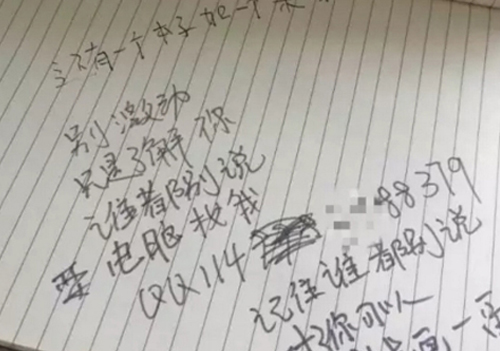 有一个本子和一个
别激动
只是了解你
谁都别说
电脑找我
QQ114 88379
记住谁都别说
你可以